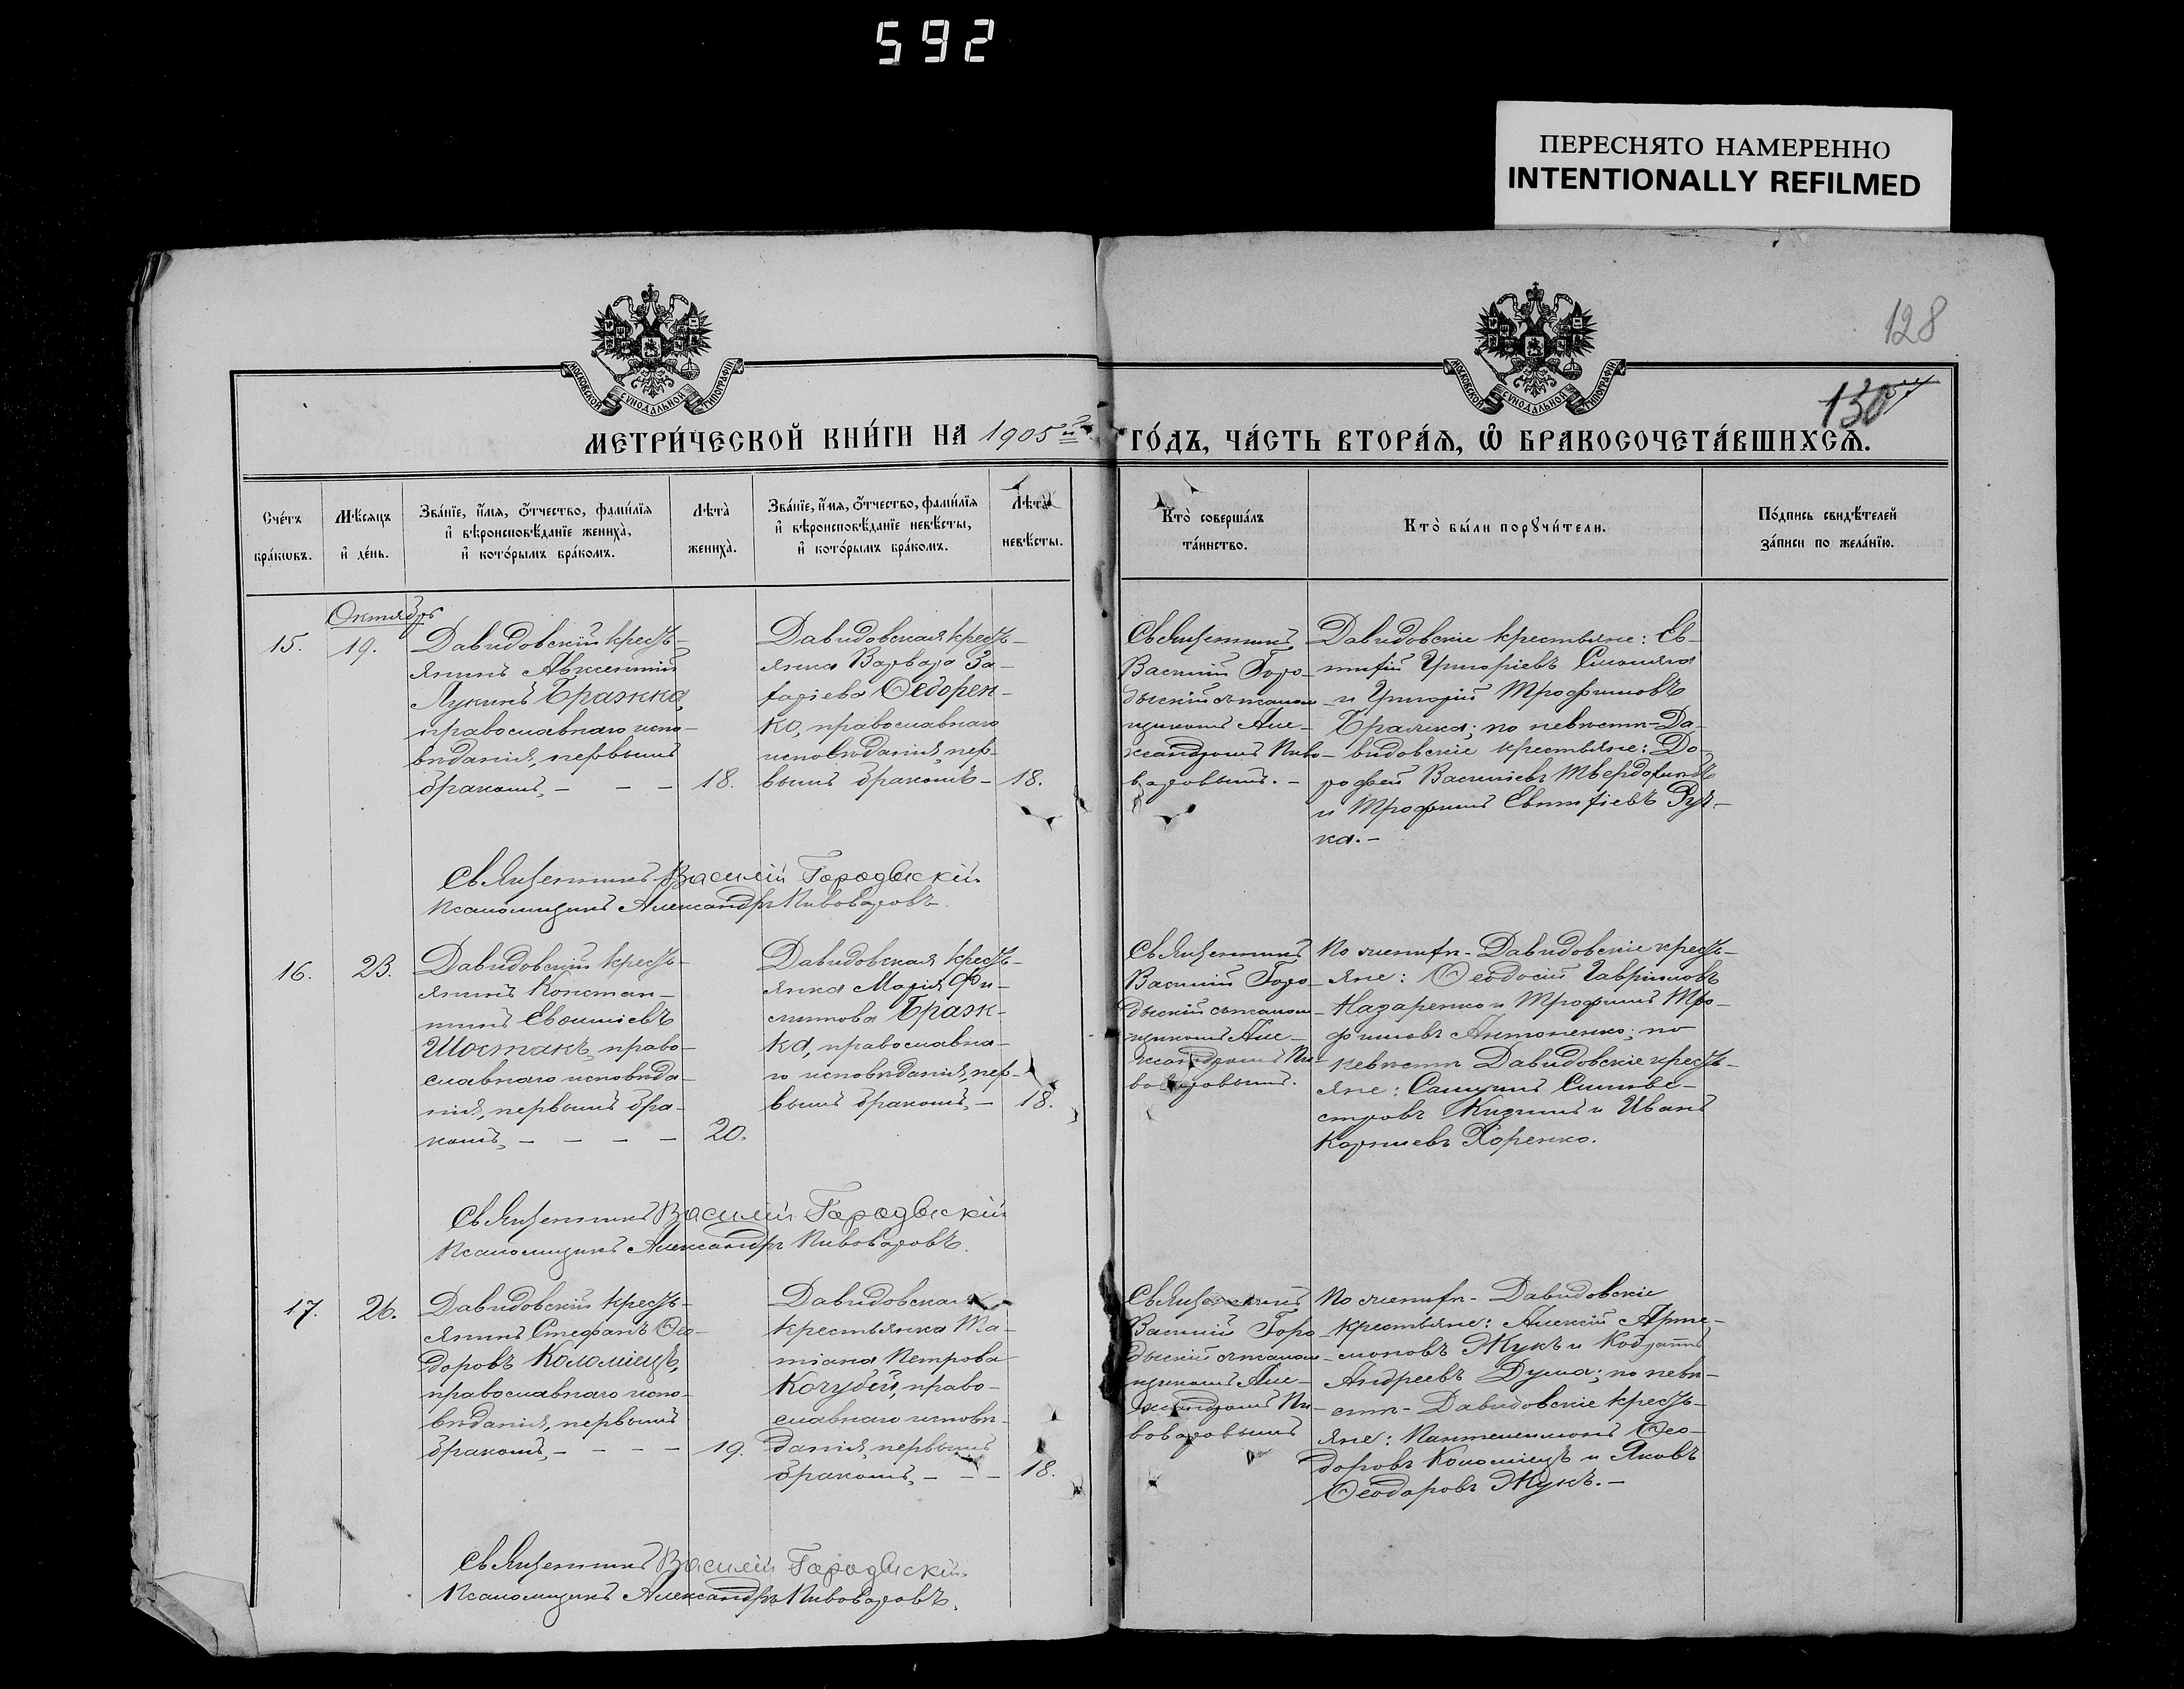 592
ПЕРЕСНЯТО НАМЕРЕННО
INTENTIONALLY REFILMED
128
130
МОСКОВСКОЙ СѴНОДАЛЬНОЙ ТИПОГРАФІИ
МОСКОВСКОЙ СѴНОДАЛЬНОЙ ТИПОГРАФІИ
МЕТРИ́ЧЕСКОЙ КНИ́ГИ НА 1905й
ГО́ДЪ, ЧА́СТЬ ВТОРА́Ѧ, Ѽ БРАКОСОЧЕТА́ВШИХСѦ.
Сче́тъ
бра́кѡвъ.
Мѣ́сяцъ
и҆ де́нь.
Зва́нїе, и҆́мя, ѻ҆́тчество, фами́лїя
и҆ вѣроисповѣ́данїе жениха̀,
и҆ кото́рымъ бра́комъ.
Лѣта̀
жениха̀.
Зва́нїе, и҆́мя, ѻ҆́тчество, фами́лїя
и҆ вѣроисповѣ́данїе невѣ́сты,
и҆ кото́рымъ бра́комъ.
Лѣта̀
невѣ́сты.
Кто̀ соверша́лъ
та́инство.
Кто̀ бы́ли порꙋчи́тели.
По́дпись свидѣ́телей
за́писи по жела́нїю.
Октябрь
15.
19.
Давидовскій кресть-
янинъ Авксентій
Лукинъ Бражка,
православнаго испо-
вѣданія, первымъ
бракомъ, – – –
18.
Давидовская кресть-
янка Варвара За-
харіева Ѳедорен-
ко, православнаго
исповѣданія, пер-
вымъ бракомъ –
18.
Священникъ
Василій Горо-
дыскій съ псалом-
щикомъ Але-
ксандромъ Пиво-
варовымъ. –
Давидовскіе крестьяне: Ев-
тихій Григоріевъ
и Григорій Трофимовъ
Бражка; по невѣстѣ – Да-
видовскіе крестьяне: До-
рофей Василіевъ Твердохлѣбъ
и Трофимъ Евтихіевъ Руч-
ка. –
Священникъ Василій Городыскій
Псаломщикъ Александръ Пивоваровъ.
16.
23.
Давидовскій кресть-
янинъ Констан-
тинъ
Шостакъ, право-
славнаго исповѣда-
нія, первымъ бра-
комъ, – – – –
20.
Давидовская кресть-
янка Марія Фи-
липпова Браж-
ка, православна-
го исповѣданія, пер-
вымъ бракомъ, –
18.
Священникъ
Василій Горо-
дыскій съ псалом-
щикомъ Але-
ксандромъ Пи-
воваровымъ.
По женихѣ – Давидовскіе кресть-
яне: Ѳеодосій Гавріиловъ
Назаренко и Трофимъ Тро-
фимовъ Антоненко; по
невѣстѣ Давидовскіе кресть-
яне: Самуилъ Сильве-
стровъ и Иванъ
Корниліевъ Хоренко.
Священникъ Василій Городыскій
Псаломщикъ Александръ Пивоваровъ.
17.
26.
Давидовскій кресть-
янинъ Стефанъ Ѳео-
доровъ Коломіецъ,
православнаго испо-
вѣданія, первымъ
бракомъ, – – – –
19.
Давидовская
крестьянка Та-
тіана Петрова
Кочубей, право-
славнаго исповѣ-
данія, первымъ
бракомъ, – – –
18.
Священникъ
Василій Горо-
дыскій съ псалом-
щикомъ Але-
ксандромъ Пи-
воваровымъ
По женихѣ – Давидовскіе
крестьяне: Алексій Арте-
моновъ Жукъ и Кодратъ
Андреевъ Дума; по невѣ-
стѣ – Давидовскіе кресть-
яне: Пантелеимонъ Ѳео-
доровъ Коломіецъ и Яковъ
Ѳеодоровъ Жукъ. –
Священникъ Василій Городыскій
Псаломщикъ Александръ Пивоваровъ.